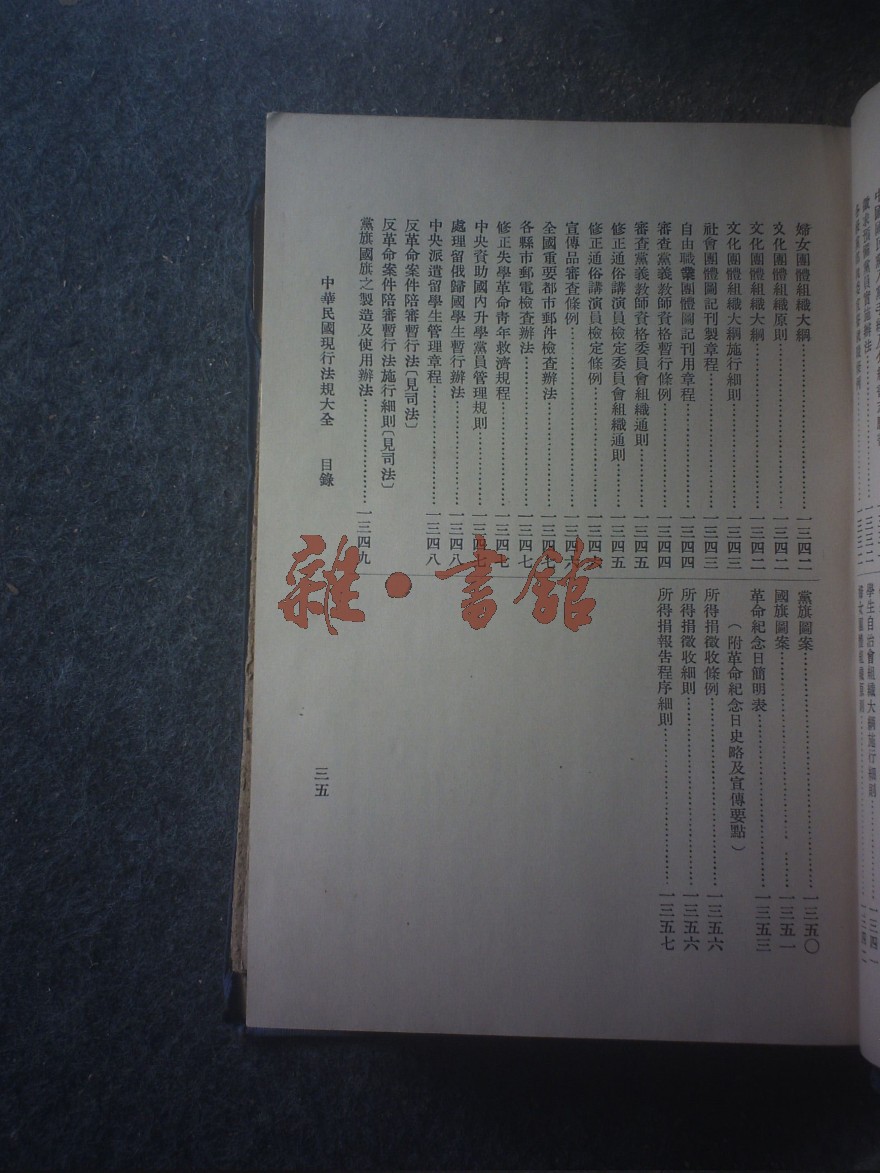 婦女團體組織大綱……一三四二
文化團體組織原則……一三四二
文化團體組織大綱……一三四二
文化團體組織大綱施行細則……一三四三
社會團體圖記刊製章程……一三四三
自由職業團體圖記刊用章程……一三四四
審查黨義教師資格暫行條例……一三四四
審查黨義教師資格委員會組織通則……一三四五
修正通俗講演員檢定委員會組織通則……一三四五
修正通俗講演員檢定條例……一三四六
宣傳品審查條例……一三四六
全國重要都市郵件檢查辦法……一三四七
各縣市郵電檢查辦法……一三四七
修正失學革命靑年救濟規程……一三四七
中央資助國內升學黨員管理規則……一三四七
處理留俄歸國學生暫行辦法……一三四八
中央派遣留學生管理章程……一三四八
反革命案件陪審暫行法〔見司法〕
反革命案件陪審暫行法施行細則〔見司法〕
黨旗國旗之製造及使用辦法……一三四九
黨旗圖案……一三五〇
國旗圖案……一三五一
革命紀念日簡明表……一三五三
（附革命紀念日史略及宣傳要點）
所得捐徵收條例……一三五六
所得捐徵收細則……一三五六
所得捐報告程序細則……一三五七
中華民國現行法規大全 目錄
三五
雜·書館
學生自治會組織大綱施行細則……一三四一